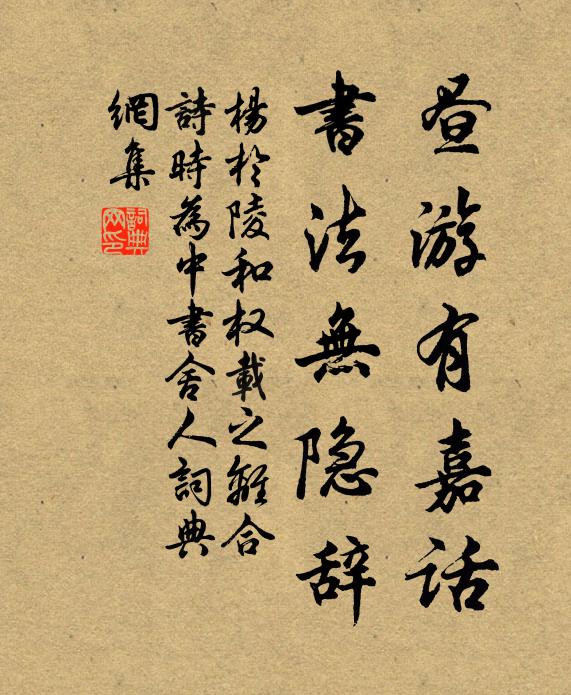 昼游有嘉话
書法無隐辞
楊於陵和权載之離合
詩時為中書舍人詞典
網集
詞典网印